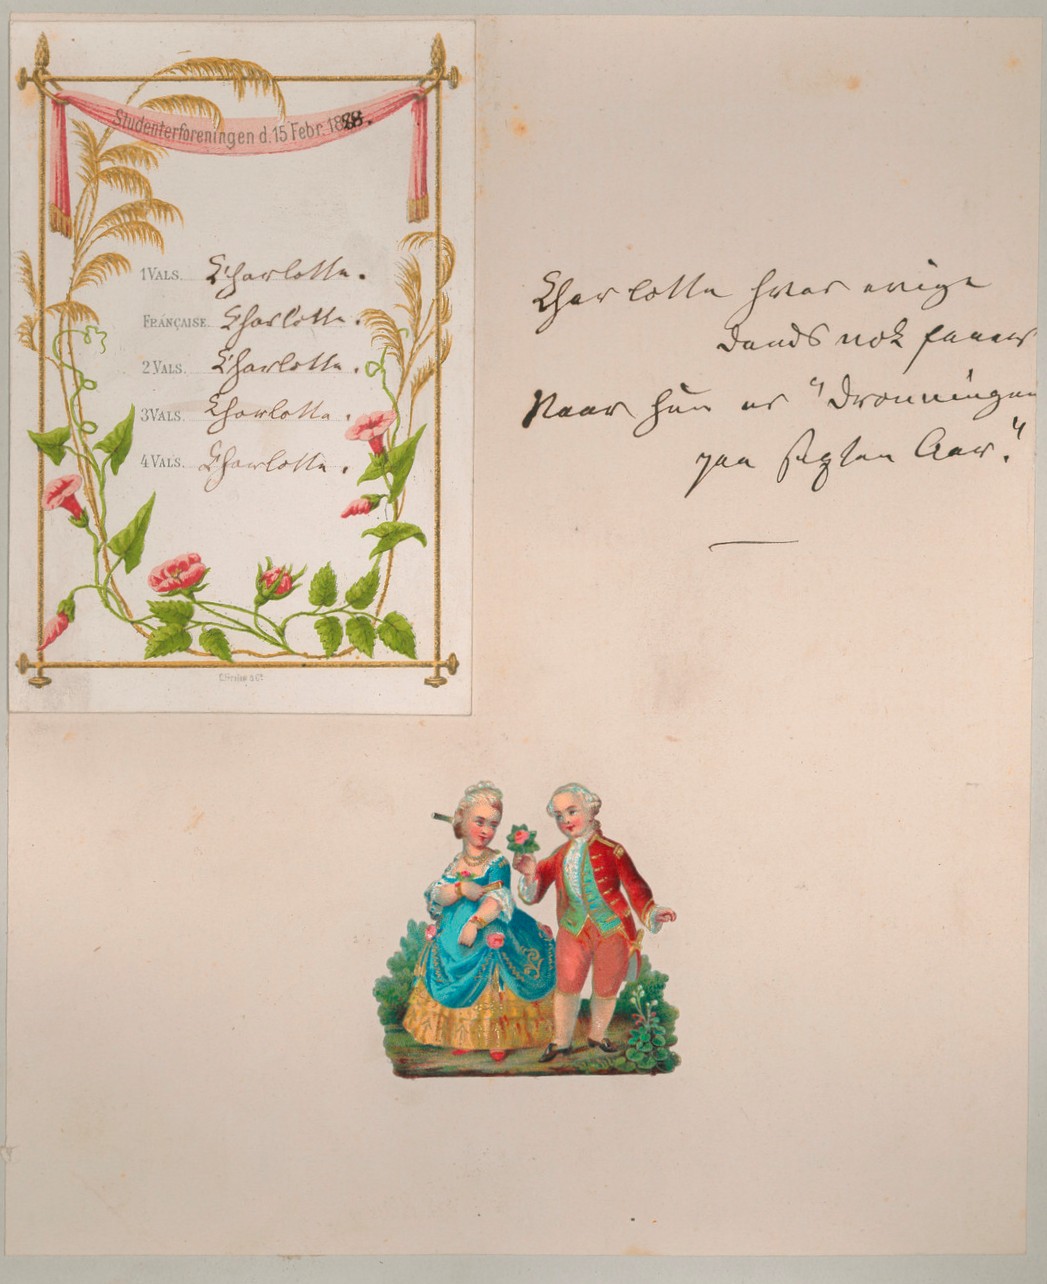 Studenterforeningen d. 15 Febr. 1888.
1 VALS. Charlotte.
FRANÇAISE. Charlotte.
2 VALS. Charlotte.
3 VALS. Charlotte.
4 VALS. Charlotte.
Charlotte hver evige
Dands nok faaer
Naar hun er "Dronningen
paa sexten Aar."